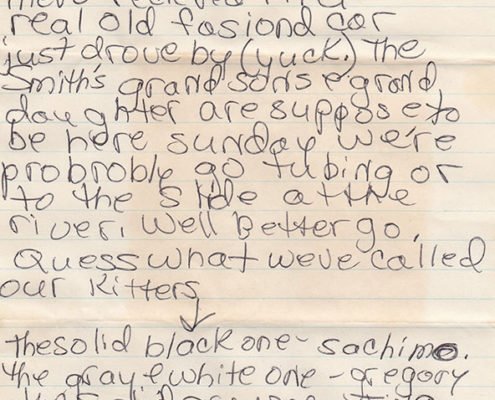 real old fasiond car
just drove by (yuck.) The
Smith's grand sons & grand
daughter are suppose to
be here sunday we're
probroble go tubing or
to the slide at the
river, well Better go,
Quess what weve called
our kitters
the solid black one - sachimo.
the gray & white one - gregory